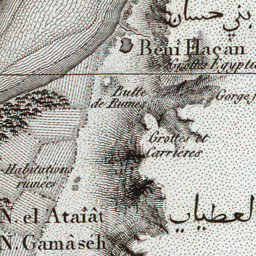 بني حسان
Beni Haçan
Grottes Egyptie
Butte
de Ruines
Gorge
Grottes et
Carrieres
Habitations
ruinées
العطيات
N. el Ataïât
N. Gamâséh